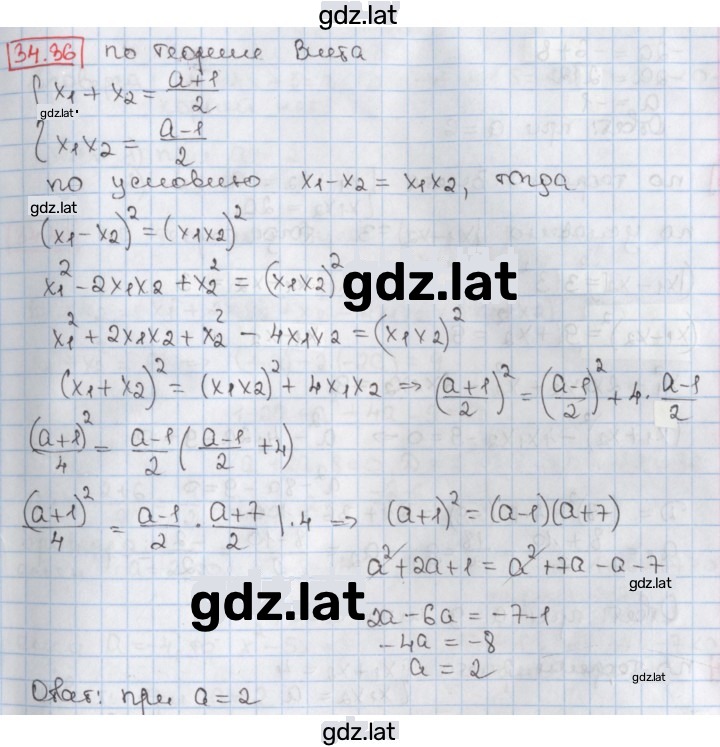 gdz.lat
34.36 по теореме Виета
{ x₁ + x₂ = (a+1)/2
gdz.lat
{ x₁x₂ = (a-1)/2
по условию x₁-x₂ = x₁x₂, тогда
gdz.lat
(x₁-x₂)² = (x₁x₂)²
x₁² - 2x₁x₂ + x₂² = (x₁x₂)²
gdz.lat
x₁² + 2x₁x₂ + x₂² - 4x₁x₂ = (x₁x₂)²
(x₁+x₂)² = (x₁x₂)² + 4x₁x₂ => ((a+1)/2)² = ((a-1)/2)² + 4·(a-1)/2
(a+1)²/4 = (a-1)/2 ((a-1)/2 + 4)
(a+1)²/4 = (a-1)/2 · (a+7)/2 |·4 => (a+1)² = (a-1)(a+7)
a² + 2a + 1 = a² + 7a - a - 7
gdz.lat
gdz.lat
2a - 6a = -7-1
-4a = -8
a = 2
gdz.lat
Ответ: при a = 2
gdz.lat